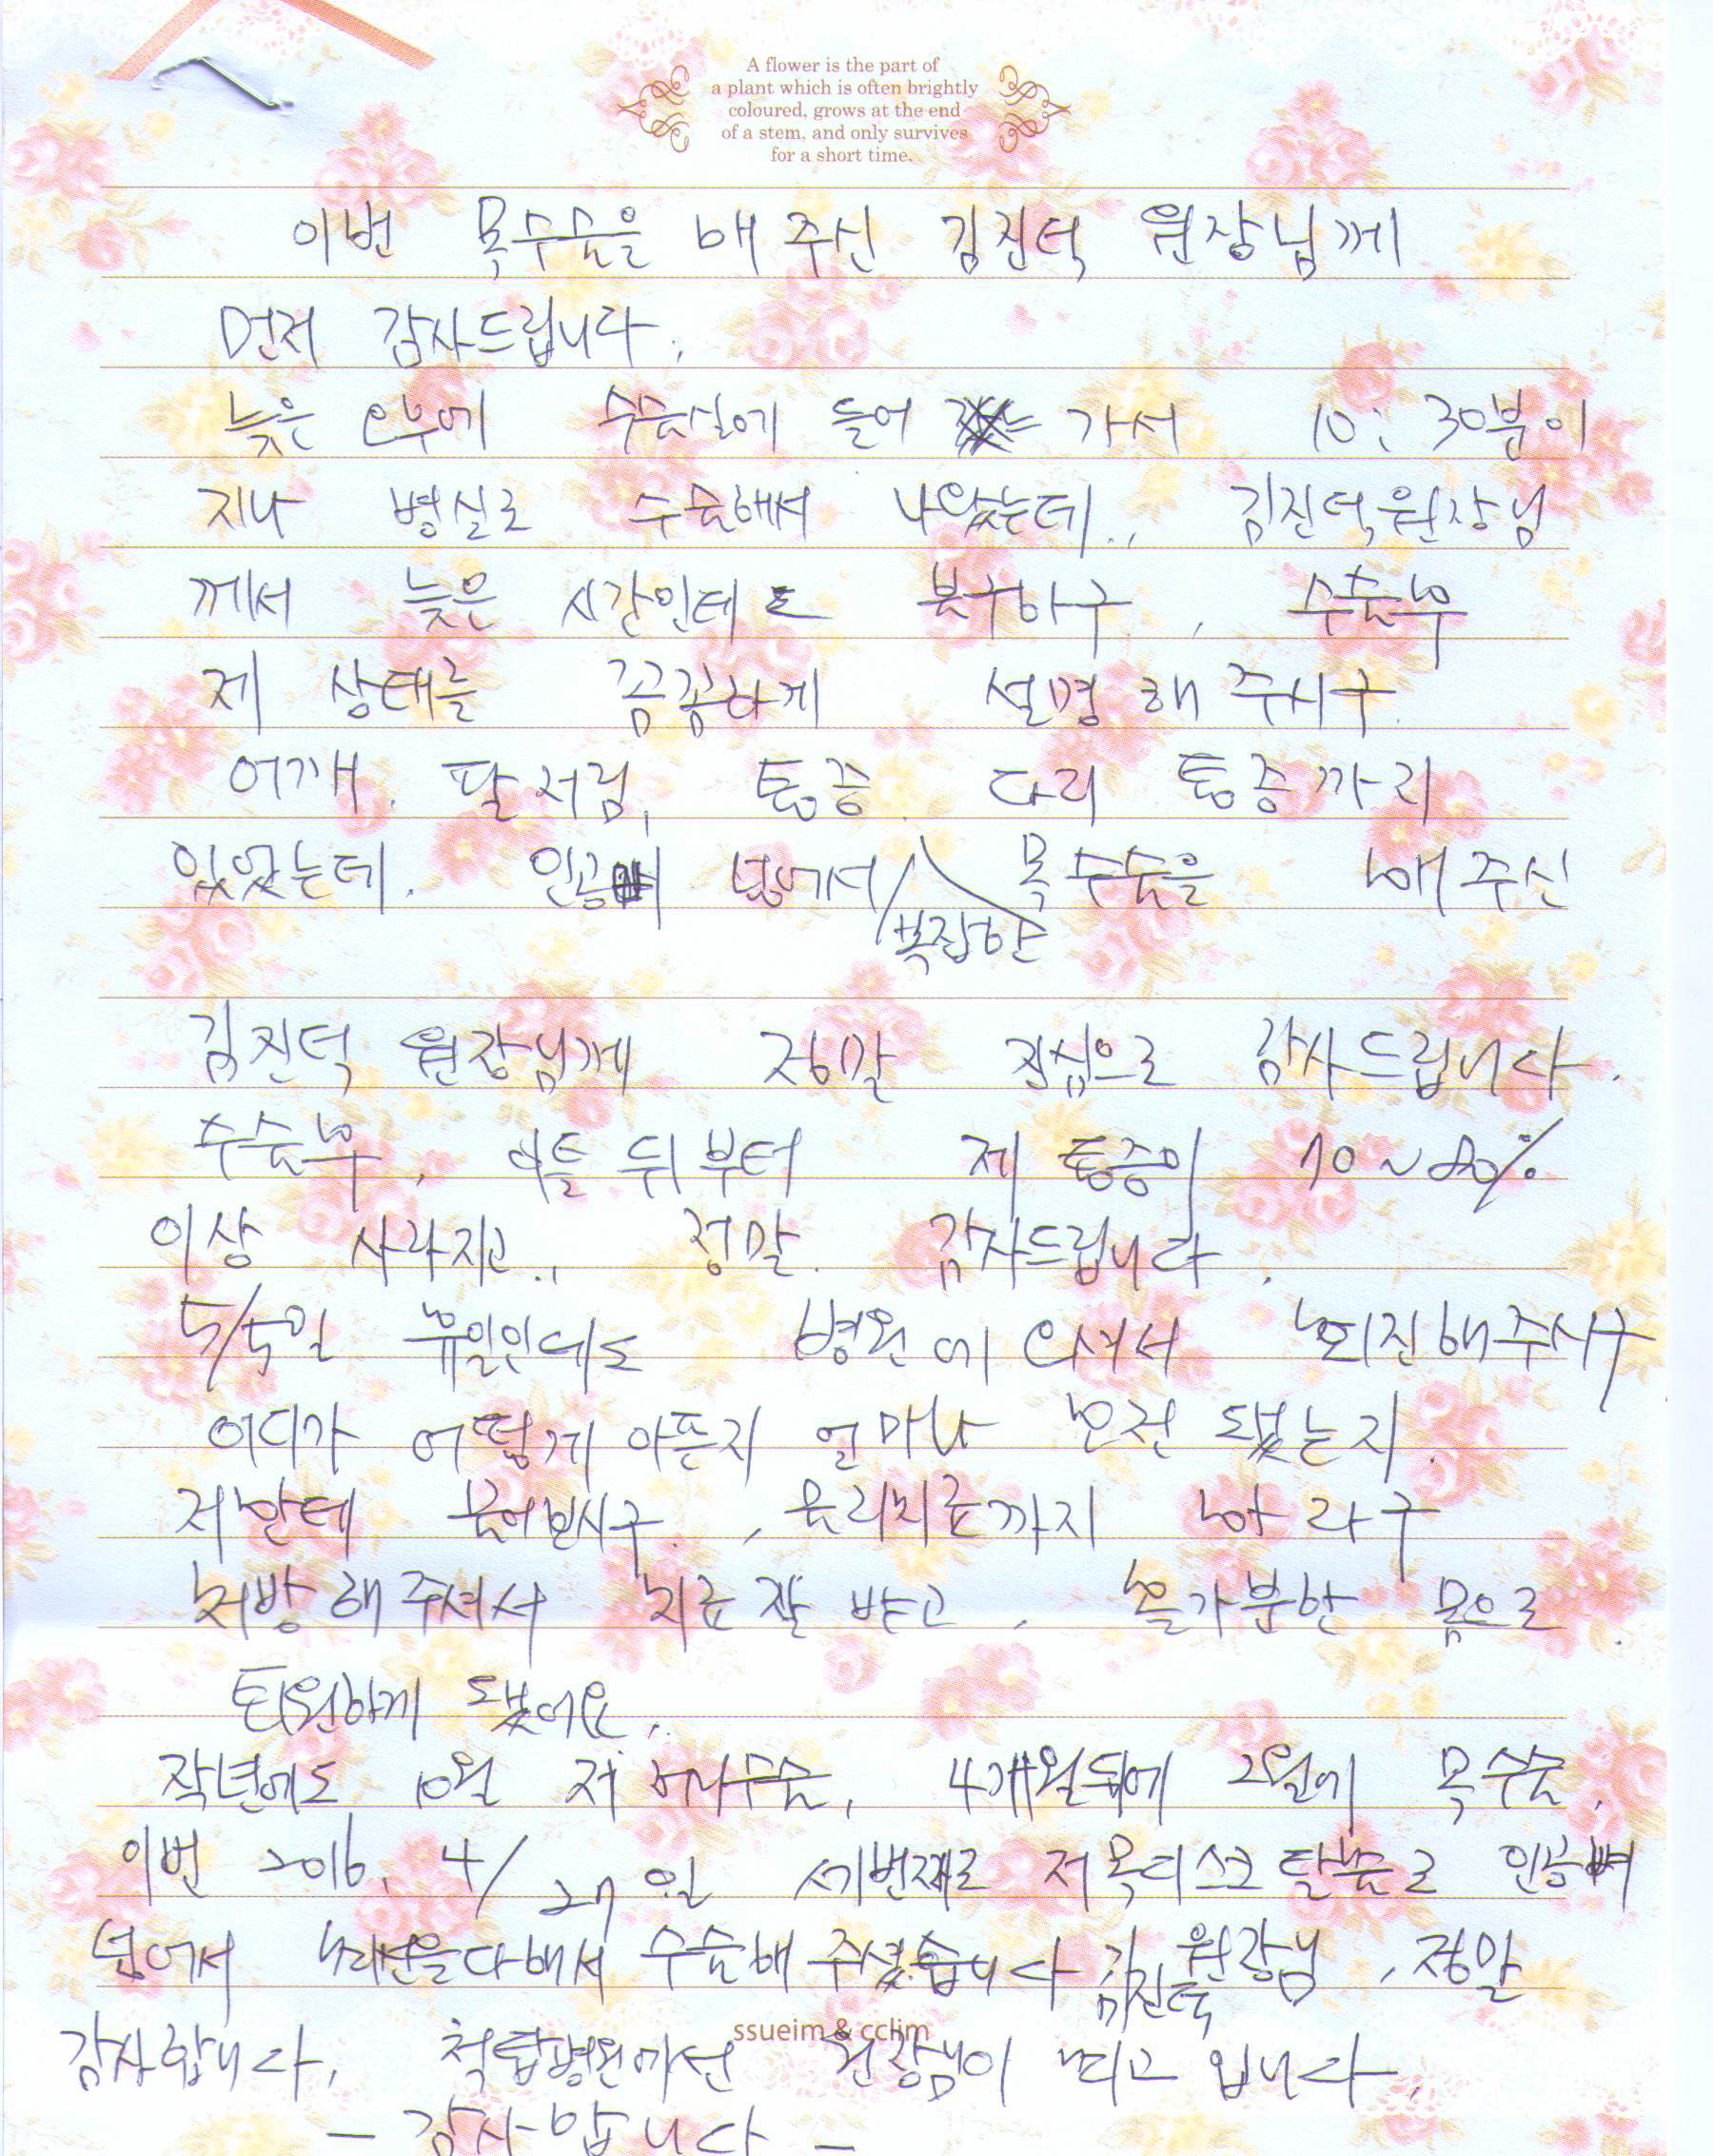 A flower is the part of
a plant which is often brightly
coloured, grows at the end
of a stem, and only survives
for a short time.
이번 목수술을 해 주신 김진덕 원장님께
먼저 감사드립니다.
늦은 오후에 수술실에 들어 가서 10:30분이
지나 병실로 수술해서 나왔는데.., 김진덕원장님
께서 늦은 시간인데도 불구하구, 수술후
제 상태를 꼼꼼하게 설명 해 주시구.
어깨. 팔저림, 통증. 다리 통증까지
있었는데. 인공뼈 넣어서 복잡한 목수술을 해 주신
김진덕 원장님께 정말 진심으로 감사드립니다.
수술후, 이틀 뒤부터 제 통증이 70~80%
이상 사라지고.., 정말. 감사드립니다.
5/5일 휴일인데도 병원에 오셔서 회진해주시구
어디가 어떻게 아픈지 얼마나 호전 됐는지.
저한테 물어보시구, 물리치료까지 하라구
처방해주셔서 치료 잘 받고, 홀가분한 몸으로.
퇴원하게 됐어요..
작년에도 10월 저 허리수술, 4개월뒤에 2월에 목수술,
이번 2016. 4/27일 세번째로 저 목디스크 탈출로 인공뼈
넣어서 최선을다해서 수술해 주셨습니다 김진덕 원장님, 정말
감사합니다. 척탑병원에선 원장님이 최고 입니다.
ssueim & cclim
- 감사합니다 -